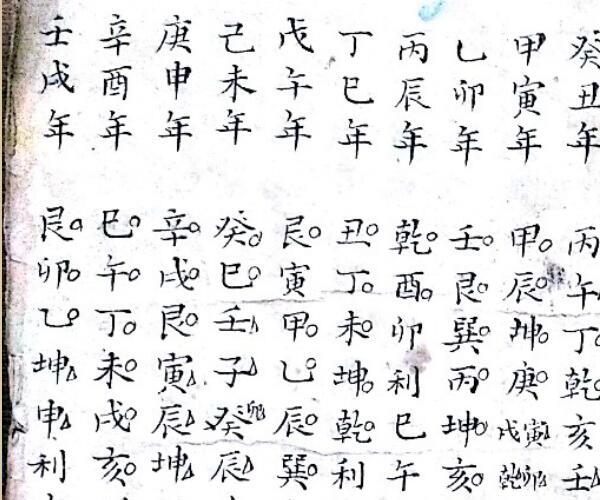 癸丑年
丙午丁乾亥壬
甲寅年
甲辰坤庚戌寅乾卯
乙卯年
壬艮巽丙坤亥
丙辰年
乾酉卯利巳午
丁巳年
丑丁未坤乾利
戊午年
艮寅甲乙辰巽
己未年
癸巳壬子癸卯辰
庚申年
辛戌艮寅辰坤
辛酉年
巳午丁未戌亥
壬戌年
艮卯乙坤申利